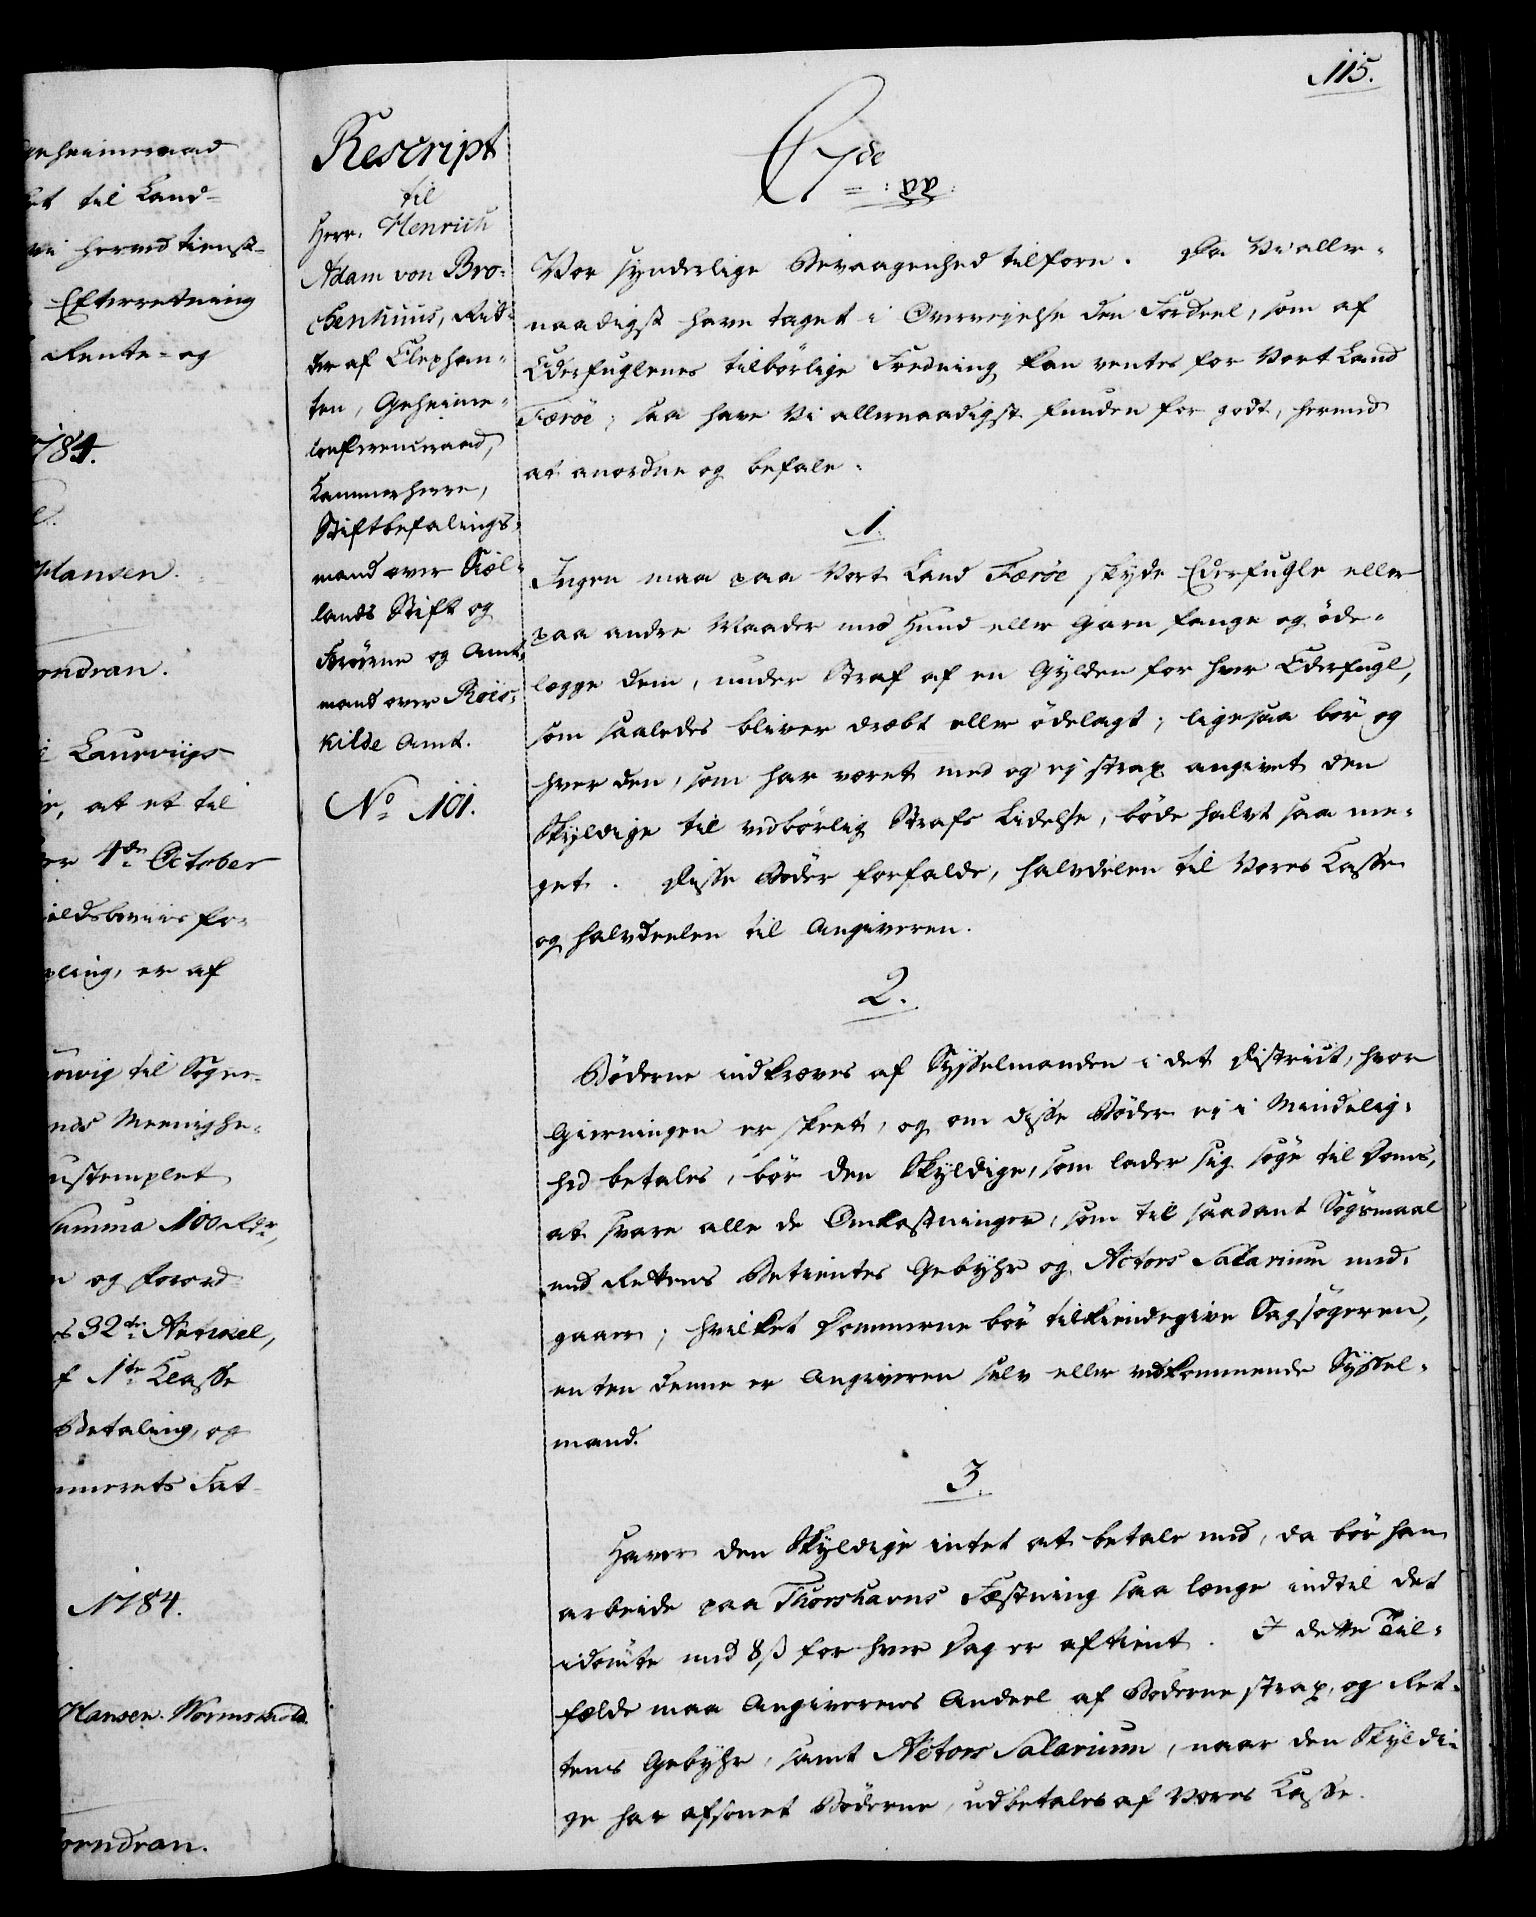 geheimeraad
et til Land=
vi hermed tienst=
Efterretning
Rente= og
1784.
Hansen.
orndran.
i Laurvigs
ie, at et til
er 4de October
ildsbeviis for=
ling, er af
owig til Sogne=
nds Meenighe=
ustemplet
Summa 100 Rdr,
n og Forord
s 32te Articul,
f 1ste Classe
Betaling, og
merets Fat=
1784.
Hansen. Wormskiold.
orndran.
115.
Rescript
til
Herr. Henrich
Adam von Bro=
ckenhuus, Rid=
der af Elephan=
ten, Geheime=
conferenceraad,
Kammerherre,
Stiftbefalings=
mand over Siæl=
lands Stift og
Færöerne og Amt=
mand over Roes=
kilde Amt.
No 101.
C 7de
Vor synderlige Bevaagenhed tilforn. Da Vi aller=
naadigst have taget i Overvejelse den Fordeel, som af
Ederfuglenes tilbörlige Fredning kan ventes for Vort Land
Færöe; saa have Vi allernaadigst funden for godt, hermed
at anordne og befale.
1.
Ingen maa paa Vort Land Færöe skyde Ederfugle eller
paa andre Maader med Hund eller Garn fange og öde=
lægge dem, under Straf af en Gylden for hver Ederfugl,
som saaledes bliver dræbt eller ödelagt; ligesaa bör og
hver den, som har været med og ej strax angivet den
Skyldige til vedbörlig Strafs Lidelse, böde halvt saa me=
get. Disse Böder forfalde, halvdelen til Vores Casse
og halvdeelen til Angiveren.
2.
Böderne indkræves af Sysselmanden i det District, hvor
Gierningen er skeet, og om disse Böder ej i Mindelig=
hed betales, bör den Skyldige, som lader sig söge til Doms,
at svare alle de Omkostninger, som til saadant Sögsmaal
med Rettens Betientes Gebyhr og Actors Salarium med=
gaaer; hvilket Dommerne bör tilkiendegive Sagsögeren,
enten denne er Angiveren selv eller vedkommende Syssel=
mand.
3.
Haver den Skyldige intet at betale med, da bör han
arbeide paa Thorshavns Fæstning saa længe indtil det
idömte med 8 ß for hver Dag er aftient. I dette Til=
fælde maa Angiverens Andeel af Böderne strax, og Ret=
tens Gebyhr, samt Actors Salarium, naar den Skyldi=
ge har afsonet Böderne, udbetales af Vores Casse.